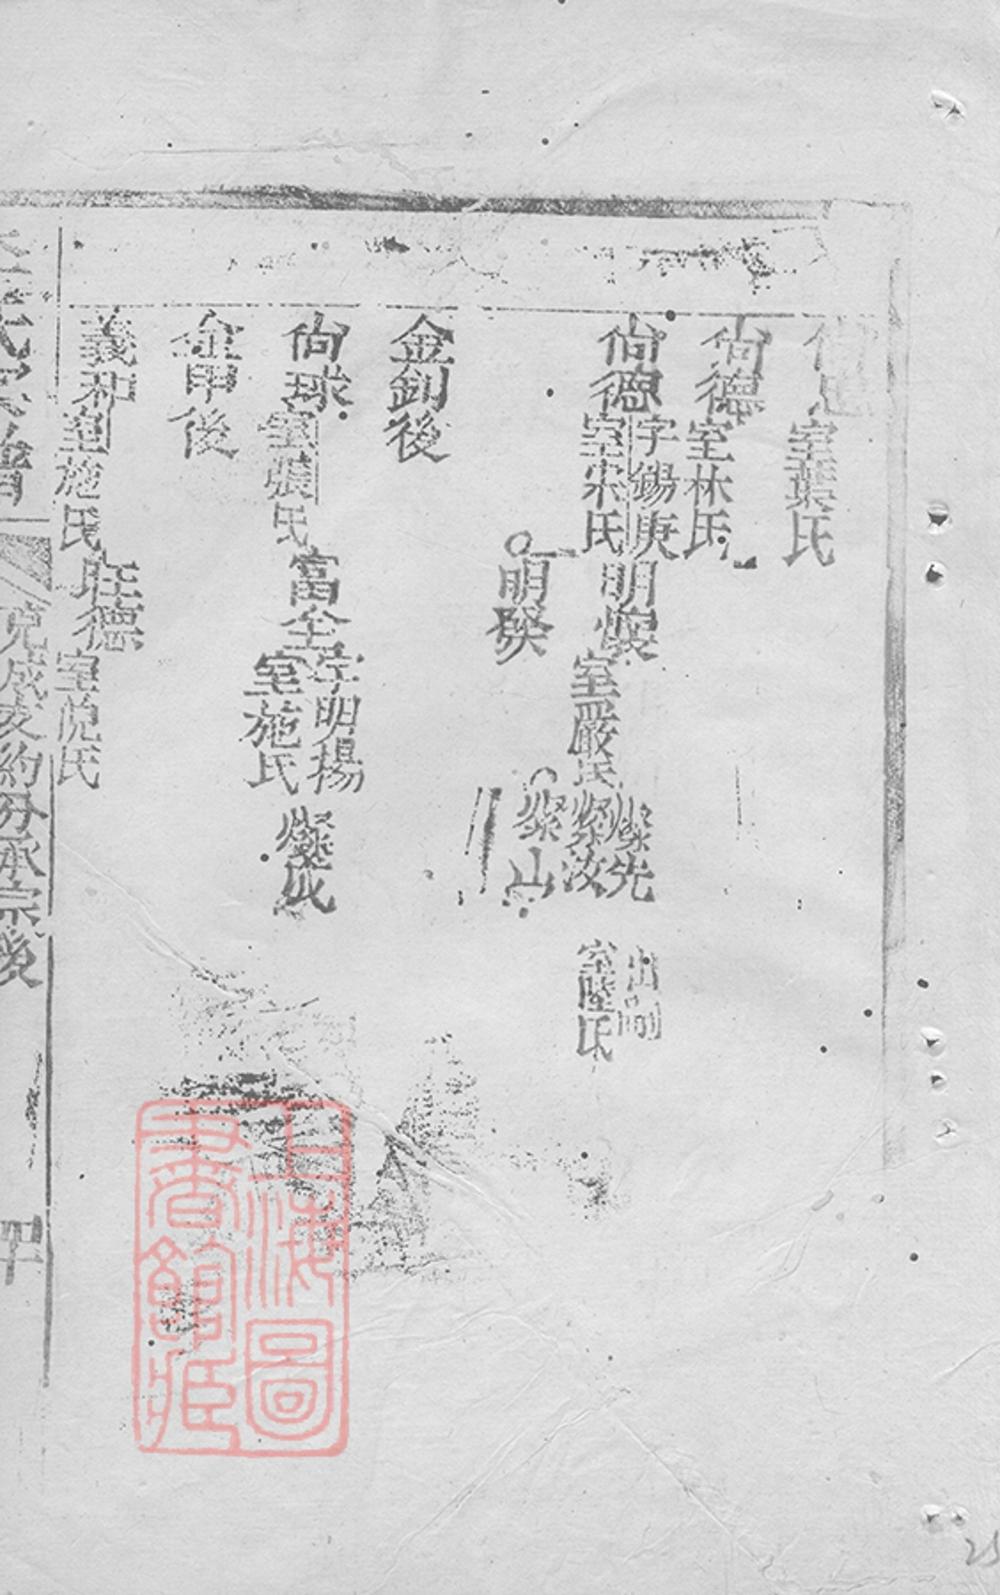 尙忠室葉氏
尙德室林氏
尙德字錫庚室宋氏明㷮室嚴氏燦先出嗣
燦汝室陸氏
燦山
明發
金釗後
尙球室張氏富全字明揚室施氏燦成
金甲後
義和室施氏旺德室倪氏
氏宗譜 克成友約分承宗後
上海圖書館藏